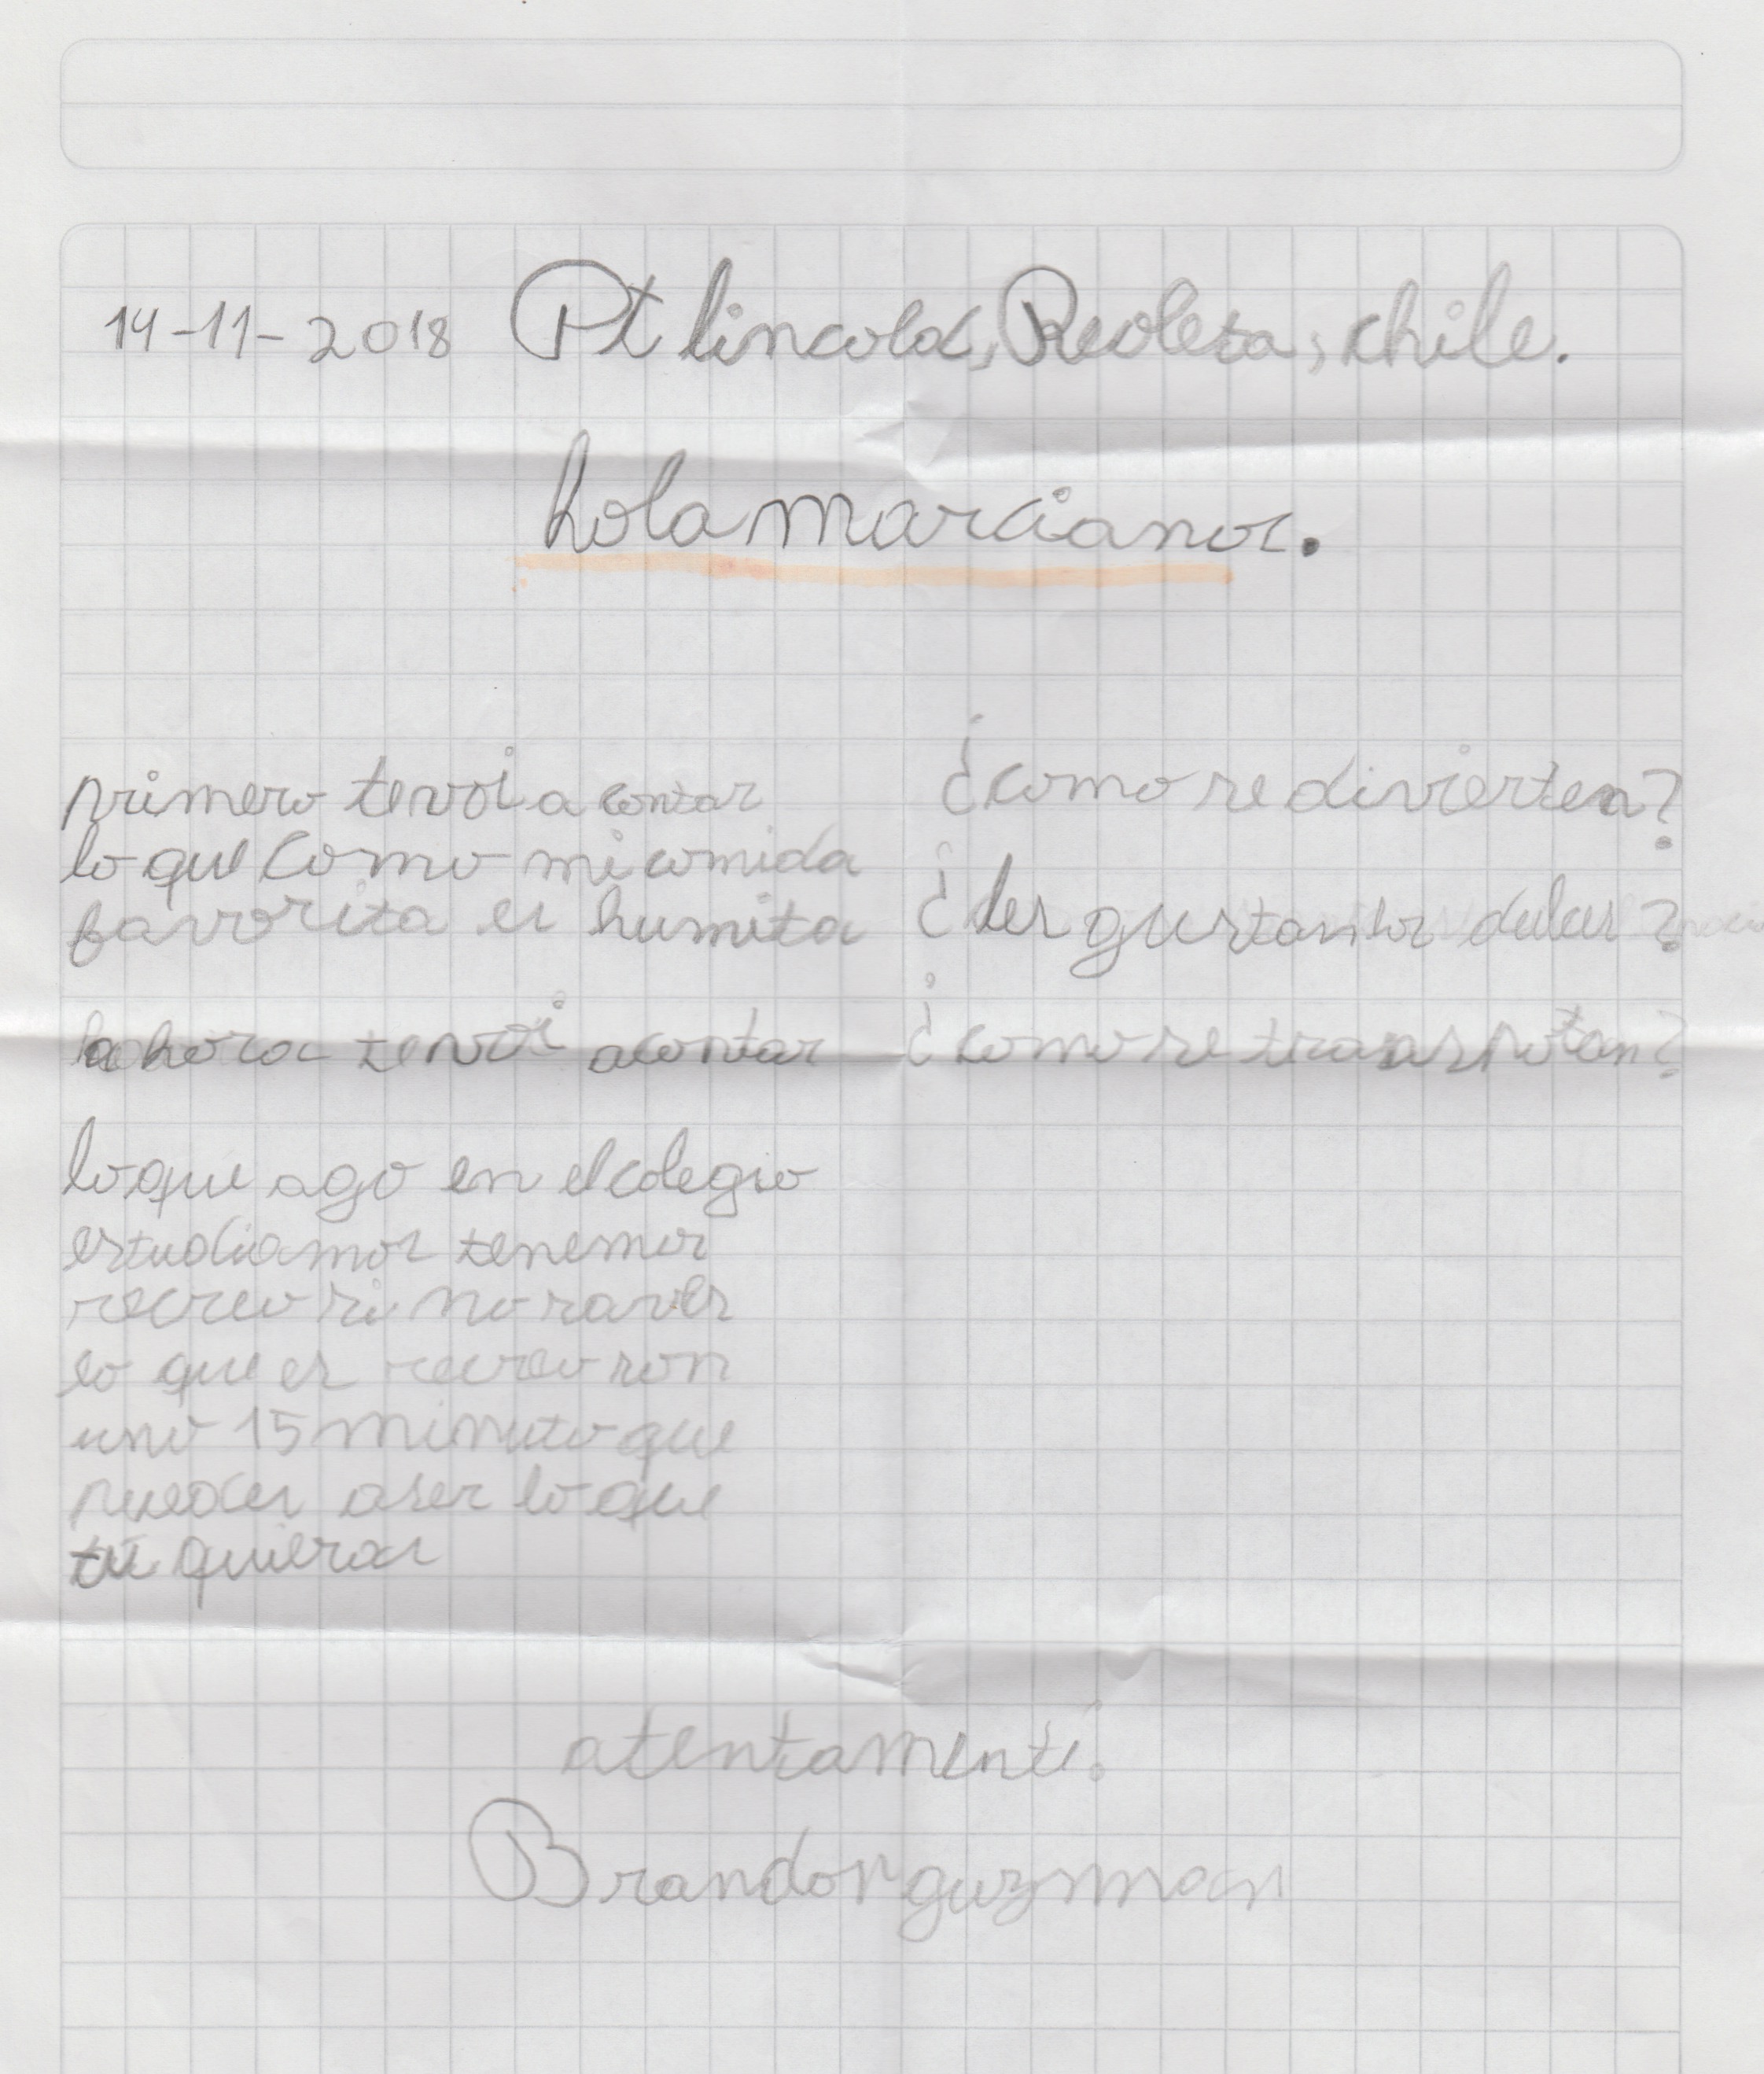 14-11-2018 Pt lincold, Recoleta, chile.
hola marcianos.
primero te voi a contar
lo que como mi comida
favorita es humita
ahora te voi a contar
lo que ago en el colegio
estudiamos tenemos
recreo si no saves
lo que es recreo son
uno 15 minuto que
puedes aser lo que
tú quieras
¿como se divierten?
¿les gustan los dulces?
¿como se transpotan?
atentamente.
Brandon guzman